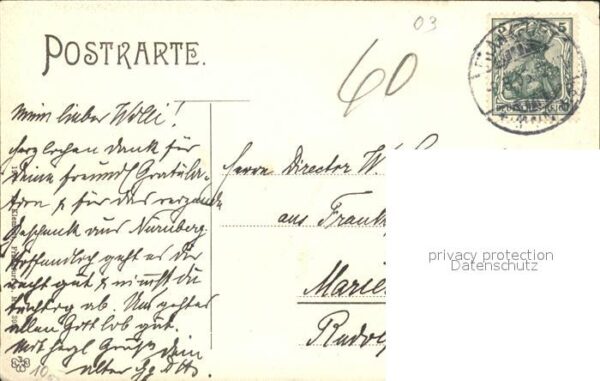 03
5
POSTKARTE.
60
Mein lieber Willi!
Herzlichen Dank für
Deine freundl Gratula-
tion & für das reizende
Geschenk aus Nürnberg
Hoffentlich geht es Dir
recht gut & nimmst du
tüchtig ab. Uns geht es
allen Gott lob gut.
Mit herzl Gruß Dein
alter
Herrn Director W.
aus Frankf
Marie
Rudol
privacy protection
Datenschutz